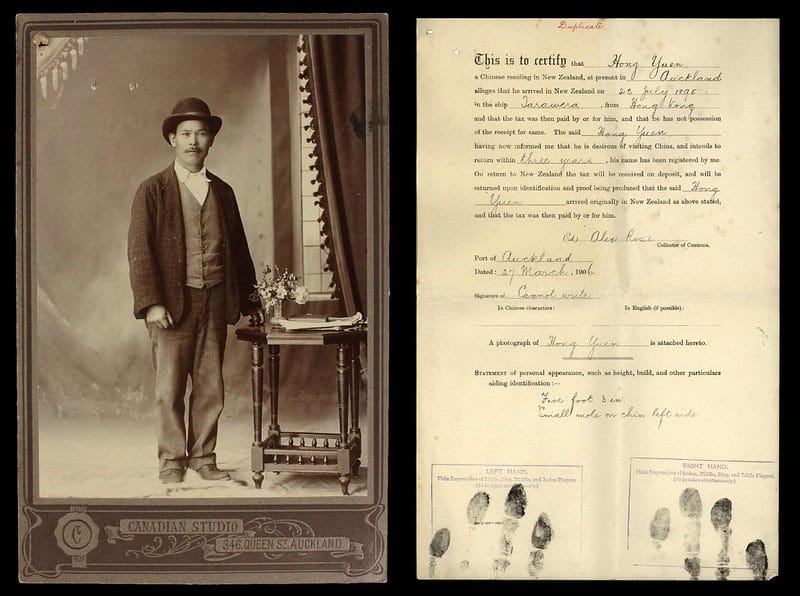 C
CANADIAN STUDIO
346, QUEEN ST. AUCKLAND.
Duplicate
This is to certify that Hong Yuen
a Chinese residing in New Zealand, at present in Auckland
alleges that he arrived in New Zealand on 22 July
in the ship Tarawera, from Hong Kong
and that the tax was then paid by or for him, and that he has not possession
of the receipt for same. The said Hong Yuen
having now informed me that he is desirous of visiting China, and intends to
return within three years, his name has been registered by me.
On return to New Zealand the tax will be received on deposit, and will be
returned upon identification and proof being produced that the said Hong
Yuen arrived originally in New Zealand as above stated,
and that the tax was then paid by or for him.
Alex Rose
Collector of Customs.
Port of Auckland
Dated: 27 March, 1906.
Signature of Cannot write
In Chinese characters: In English (if possible):
A photograph of Hong Yuen is attached hereto.
STATEMENT of personal appearance, such as height, build, and other particulars
aiding identification:—
Five foot 3 in.
Small mole on chin left side
LEFT HAND.
Plain Impressions of Little, Ring, Middle, and Index Fingers.
(To be taken simultaneously.)
RIGHT HAND.
Plain Impressions of Index, Middle, Ring, and Little Fingers.
(To be taken simultaneously.)